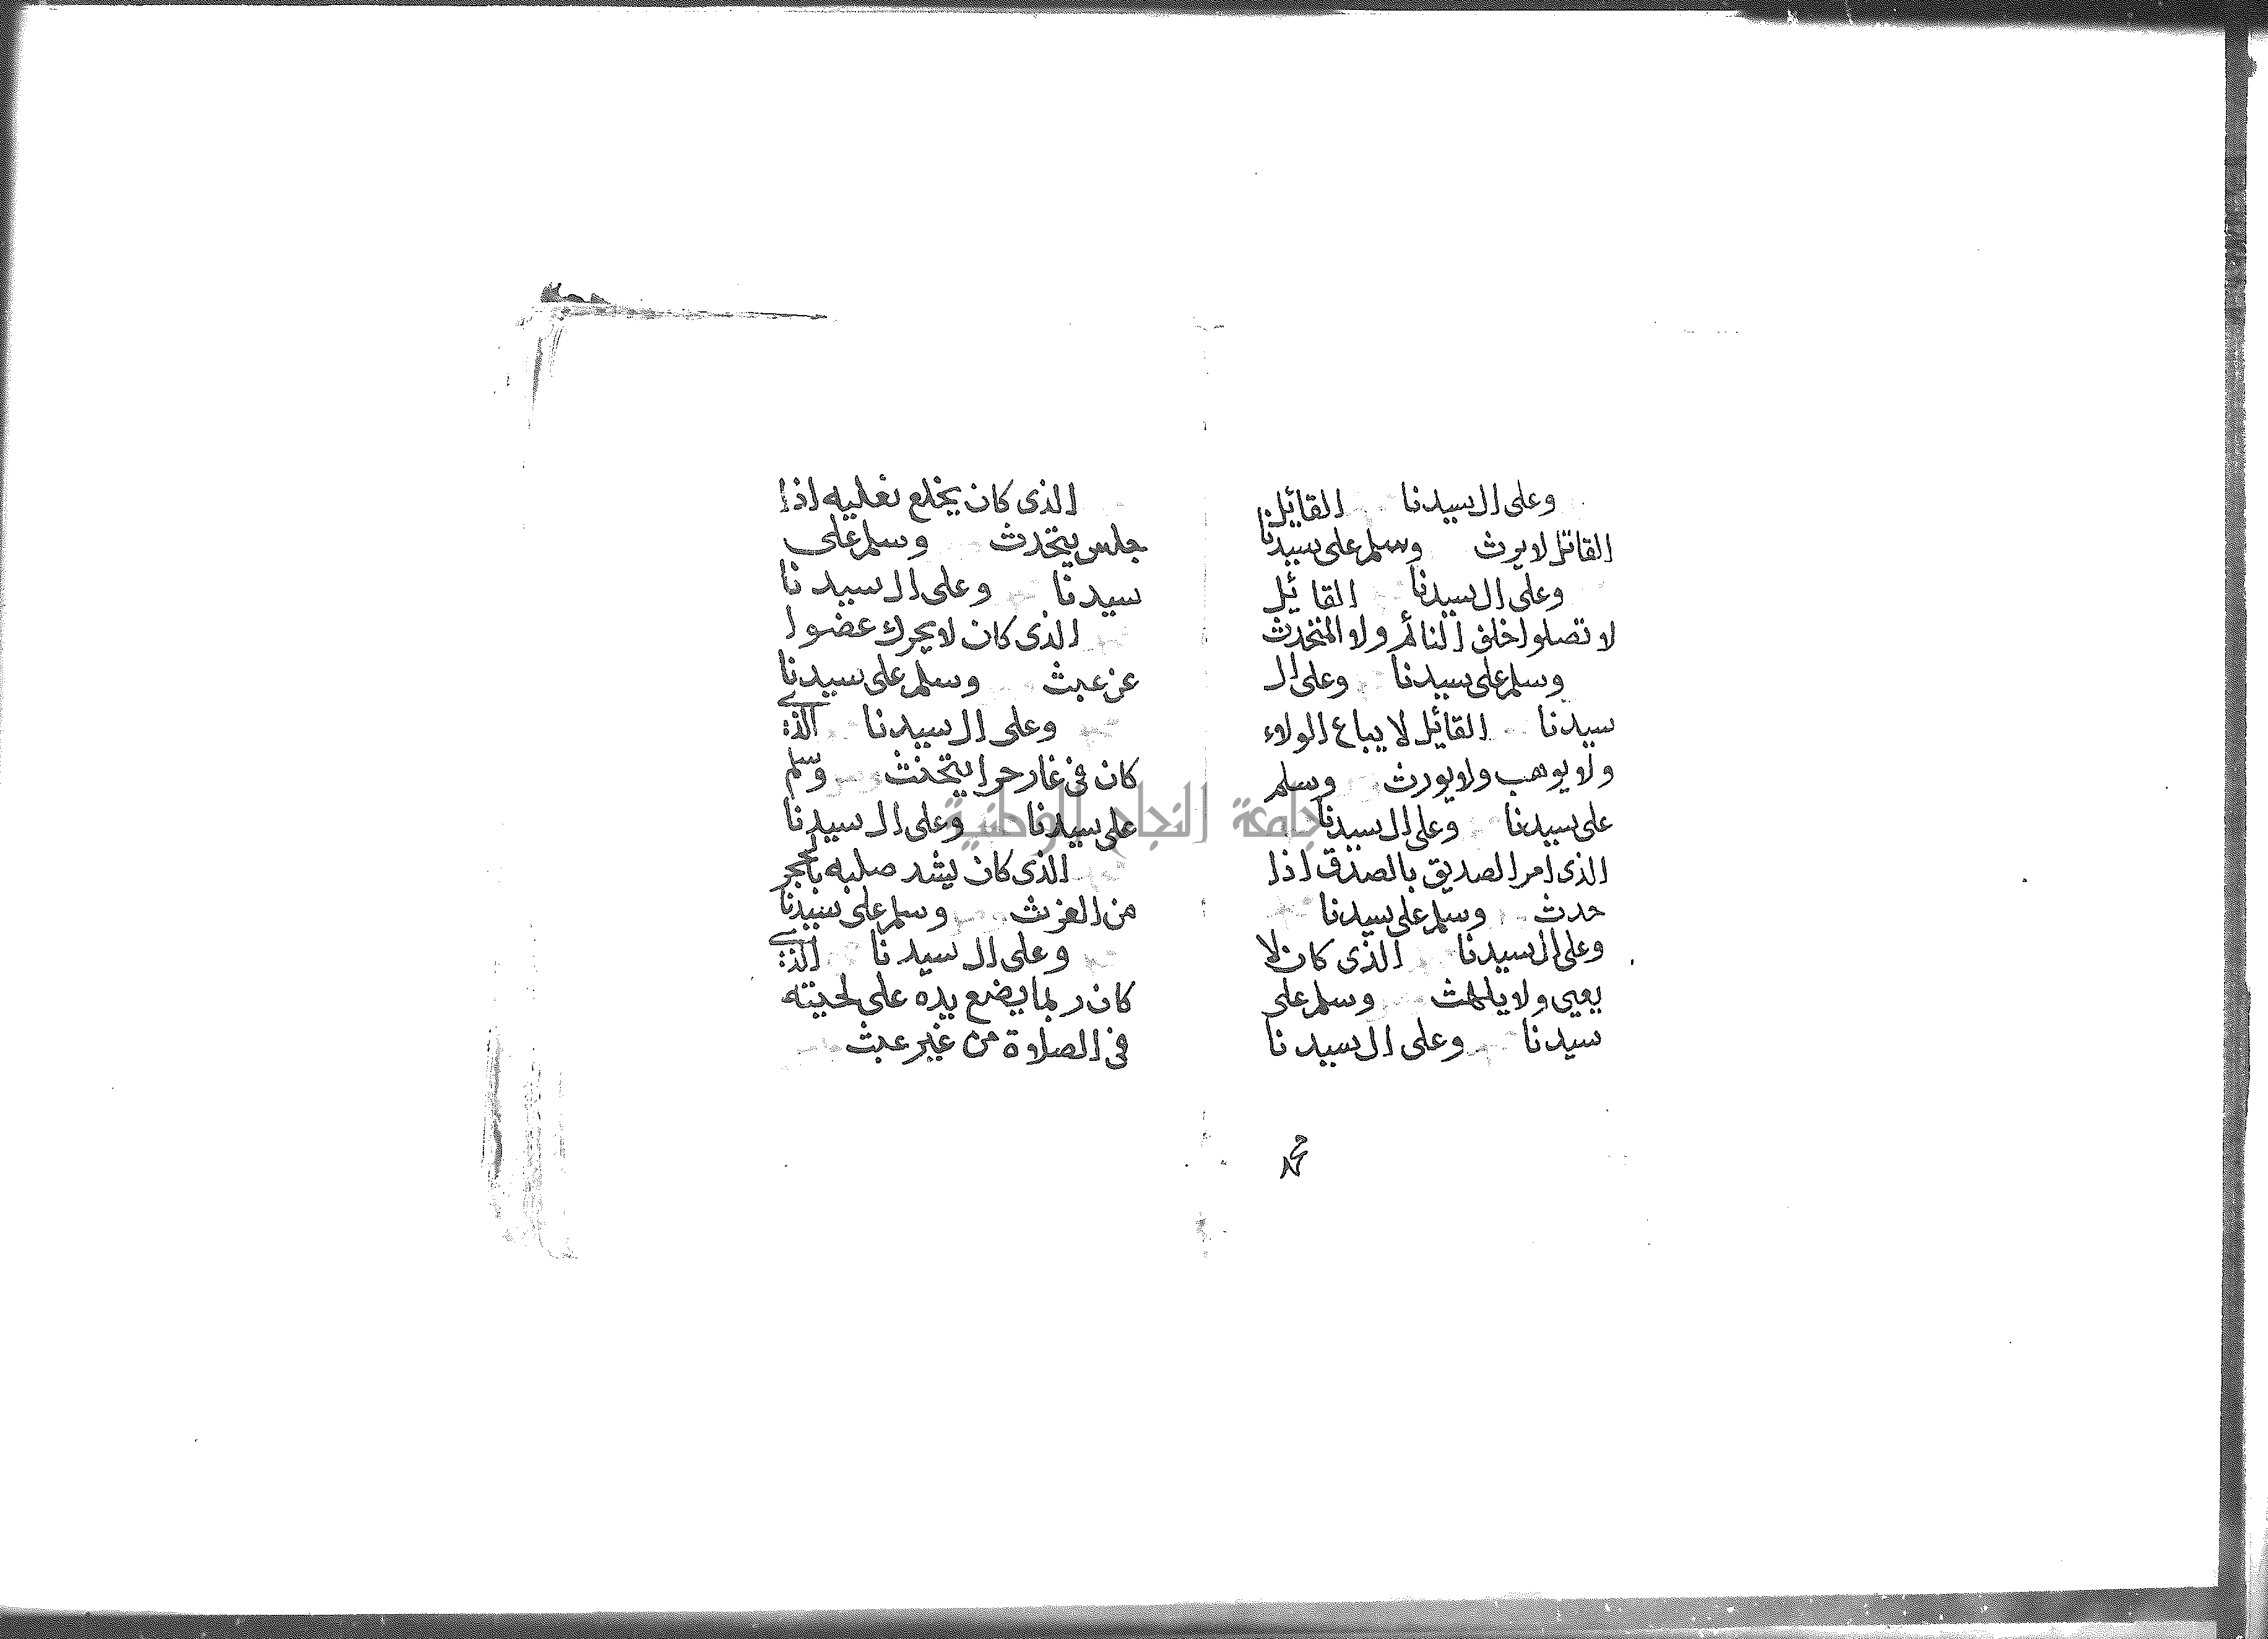 وعلى ال سيدنا القائل
القاتل لا يرث وسلم على سيدنا
وعلى ال سيدنا القائل
لا تصلوا خلف النائم ولا المتحدث
وسلم على سيدنا وعلى ال
سيدنا القائل لا يباع الولاء
ولا يوهب ولا يورث وسلم
على سيدنا وعلى ال سيدنا
الذى امر الصديق بالصدق اذا
حدث وسلم على سيدنا
وعلى ال سيدنا الذى كان لا
يعيى ولا يلهث وسلم على
سيدنا وعلى ال سيدنا
محمد
الذى كان يخلع نعليه اذا
جلس يتحدث وسلم على
سيدنا وعلى ال سيدنا
الذى كان لا يحرك عضوا
عن عبث وسلم على سيدنا
وعلى ال سيدنا الذى
كان فى غار حرا يتحنث وسلم
على سيدنا وعلى ال سيدنا
الذى كان يشد صلبه بالحجر
من الغرث وسلم على سيدنا
وعلى ال سيدنا الذى
كان ربما يضع يده على لحيته
فى الصلاة من غير عبث
جامعة النجاح الوطنية